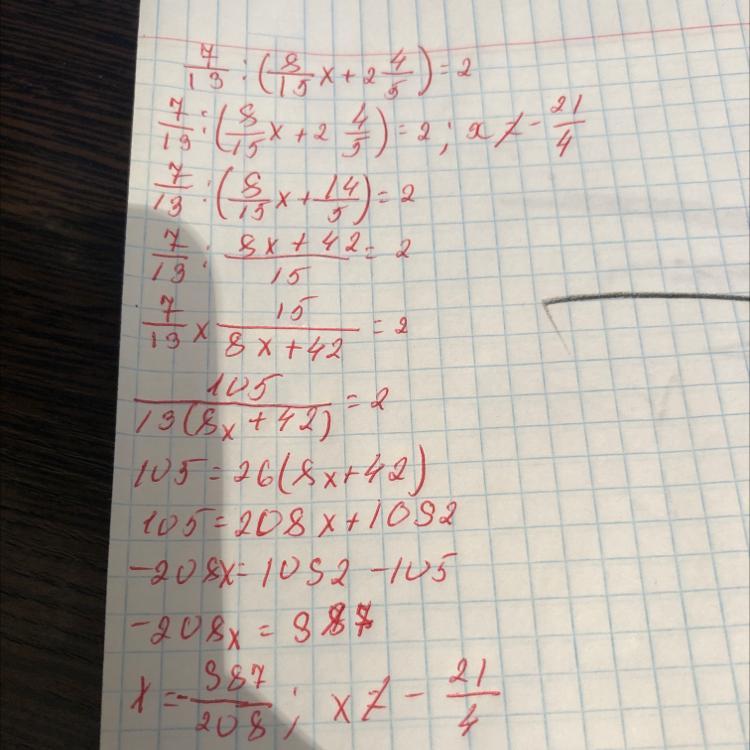 7/13 : (8/15 x + 2 4/5) = 2
7/13 : (8/15 x + 2 4/5) = 2 ; x ≠ - 21/4
7/13 : (8/15 x + 14/5) = 2
7/13 : (8x + 42)/15 = 2
7/13 x 15/(8x + 42) = 2
105/(13(8x + 42)) = 2
105 = 26(8x + 42)
105 = 208x + 1092
-208x = 1092 - 105
-208x = 987
x = - 987/208 ; x ≠ - 21/4